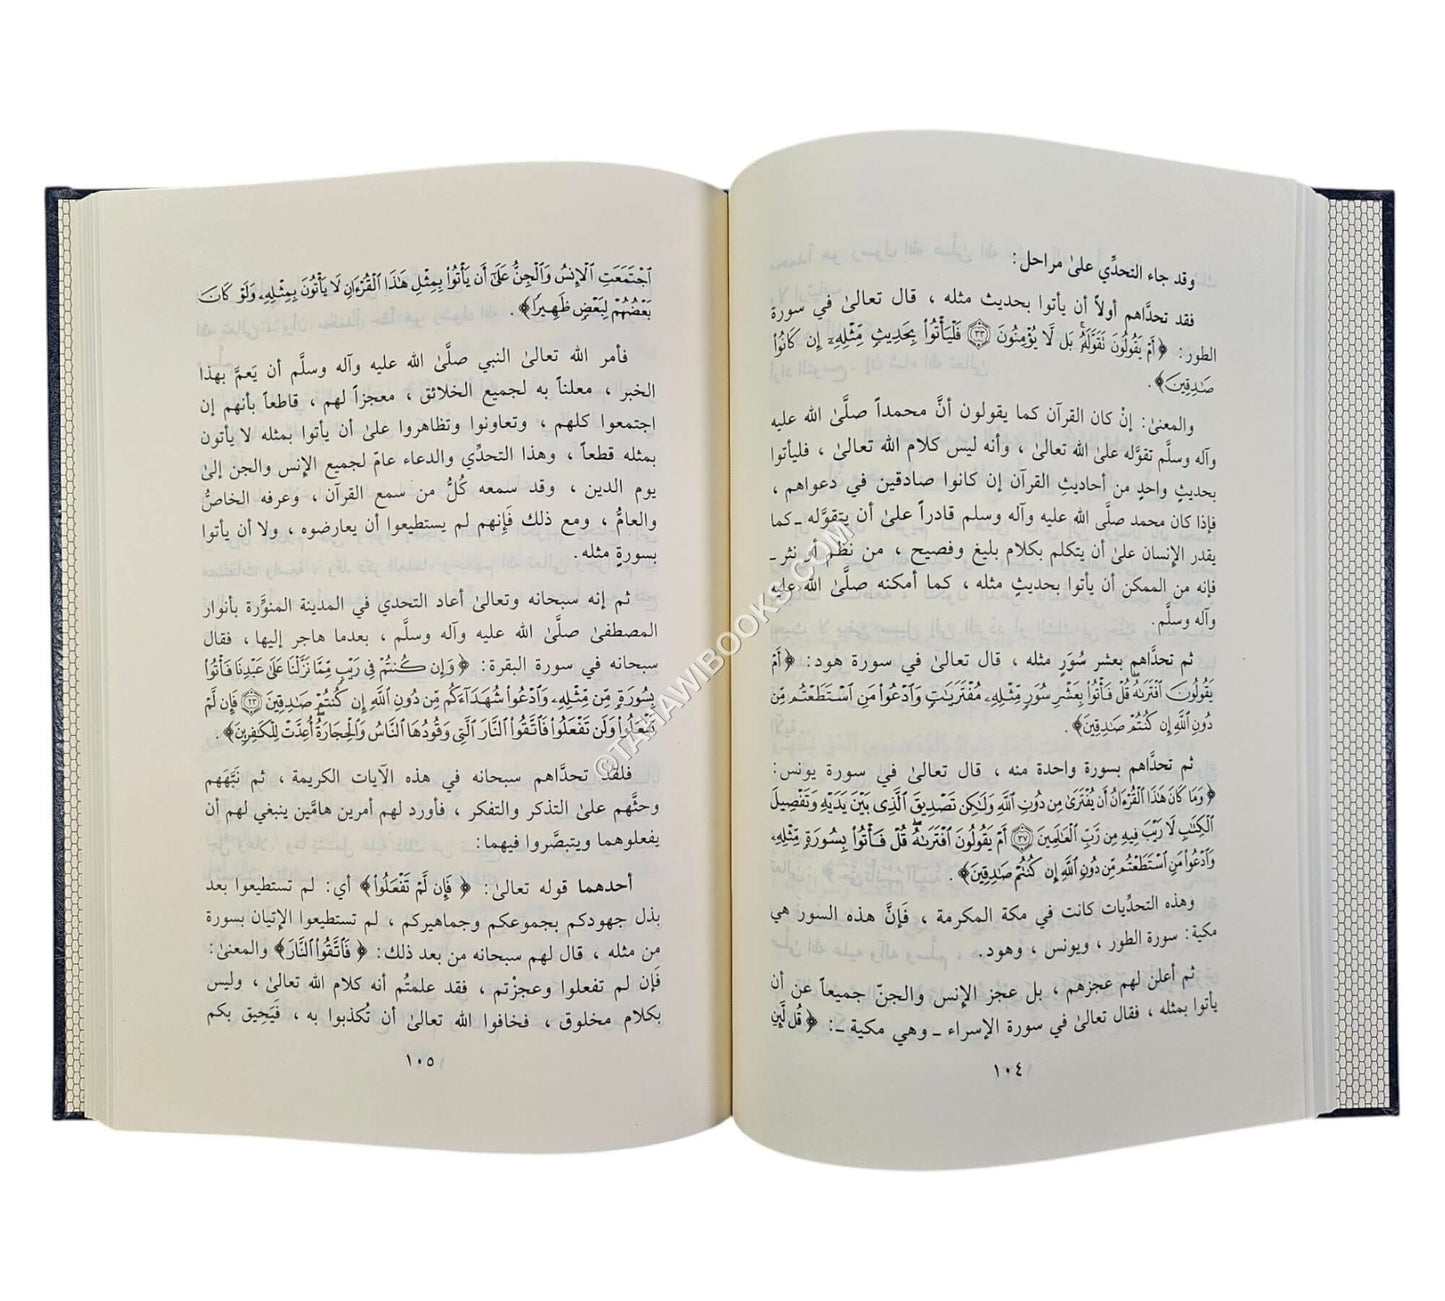 وقد جاء التحدِّي علىٰ مراحل:
فقد تحدَّاهم أولاً أن يأتوا بحديث مثله ، قال تعالىٰ في سورة
الطور: ﴿ أَمْ يَقُولُونَ تَقَوَّلَهُۥ بَل لَّا يُؤْمِنُونَ ۝٣٣ فَلْيَأْتُوا۟ بِحَدِيثٍ مِّثْلِهِۦٓ إِن كَانُوا۟
صَـٰدِقِينَ﴾.
والمعنىٰ: إنْ كان القرآن كما يقولون أنَّ محمداً صلَّىٰ الله عليه
وآله وسلَّم تقوَّله علىٰ الله تعالىٰ ، وأنه ليس كلام الله تعالىٰ ، فليأتوا
بحديثٍ واحدٍ من أحاديثِ القرآن إن كانوا صادقين في دعواهم ،
فإذا كان محمد صلَّىٰ الله عليه وآله وسلم قادراً علىٰ أن يتقوَّله ـ كما
يقدر الإنسان علىٰ أن يتكلم بكلام بليغ وفصيح ، من نظم أو نثر ـ
فإنه من الممكن أن يأتوا بحديثٍ مثله ، كما أمكنه صلَّىٰ الله عليه
وآله وسلَّم.
ثم تحدَّاهم بعشر سُوَرٍ مثله ، قال تعالىٰ في سورة هود: ﴿ أَمْ
يَقُولُونَ ٱفْتَرَىٰهُ قُلْ فَأْتُوا۟ بِعَشْرِ سُوَرٍ مِّثْلِهِۦ مُفْتَرَيَـٰتٍ وَٱدْعُوا۟ مَنِ ٱسْتَطَعْتُم مِّن
دُونِ ٱللَّهِ إِن كُنتُمْ صَـٰدِقِينَ﴾.
ثم تحدَّاهم بسورة واحدة منه ، قال تعالىٰ في سورة يونس:
﴿ وَمَا كَانَ هَـٰذَا ٱلْقُرْءَانُ أَن يُفْتَرَىٰ مِن دُونِ ٱللَّهِ وَلَـٰكِن تَصْدِيقَ ٱلَّذِى بَيْنَ يَدَيْهِ وَتَفْصِيلَ
ٱلْكِتَـٰبِ لَا رَيْبَ فِيهِ مِن رَّبِّ ٱلْعَـٰلَمِينَ ۝٣٧ أَمْ يَقُولُونَ ٱفْتَرَىٰهُ قُلْ فَأْتُوا۟ بِسُورَةٍ مِّثْلِهِۦ
وَٱدْعُوا۟ مَنِ ٱسْتَطَعْتُم مِّن دُونِ ٱللَّهِ إِن كُنتُمْ صَـٰدِقِينَ﴾ .
وهذه التحدِّيات كانت في مكة المكرمة ، فَإنَّ هذه السور هي
مكية: سورة الطور ، ويونس ، وهود.
ثم أعلن لهم عجزهم ، بل عجز الإنس والجنّ جميعاً عن أن
يأتوا بمثله ، فقال تعالىٰ في سورة الإسراء ـ وهي مكية ـ: ﴿ قُل لَّئِنِ
١٠٤
ٱجْتَمَعَتِ ٱلْإِنسُ وَٱلْجِنُّ عَلَىٰٓ أَن يَأْتُوا۟ بِمِثْلِ هَـٰذَا ٱلْقُرْءَانِ لَا يَأْتُونَ بِمِثْلِهِۦ وَلَوْ كَانَ
بَعْضُهُمْ لِبَعْضٍ ظَهِيرًا﴾ .
فأمر الله تعالىٰ النبي صلَّىٰ الله عليه وآله وسلَّم أن يَعمَّ بهذا
الخبر ، معلناً به لجميع الخلائق ، معجزاً لهم ، قاطعاً بأنهم إن
اجتمعوا كلهم ، وتعاونوا وتظاهروا علىٰ أن يأتوا بمثله لا يأتون
بمثله قطعاً ، وهذا التحدِّي والدعاء عامّ لجميع الإنس والجن إلىٰ
يوم الدين ، وقد سمعه كُلُّ من سمع القرآن ، وعرفه الخاصُّ
والعامُّ ، ومع ذلك فَإنهم لم يستطيعوا أن يعارضوه ، ولا أن يأتوا
بسورةٍ مثله.
ثم إنه سبحانه وتعالىٰ أعاد التحدي في المدينة المنوَّرة بأنوار
المصطفىٰ صلَّىٰ الله عليه وآله وسلَّم ، بعدما هاجر إليها ، فقال
سبحانه في سورة البقرة: ﴿ وَإِن كُنتُمْ فِى رَيْبٍ مِّمَّا نَزَّلْنَا عَلَىٰ عَبْدِنَا فَأْتُوا۟
بِسُورَةٍ مِّن مِّثْلِهِۦ وَٱدْعُوا۟ شُهَدَآءَكُم مِّن دُونِ ٱللَّهِ إِن كُنتُمْ صَـٰدِقِينَ ۝٢٣ فَإِن لَّمْ
تَفْعَلُوا۟ وَلَن تَفْعَلُوا۟ فَٱتَّقُوا۟ ٱلنَّارَ ٱلَّتِى وَقُودُهَا ٱلنَّاسُ وَٱلْحِجَارَةُ أُعِدَّتْ لِلْكَـٰفِرِينَ﴾ .
فلقد تحدَّاهم سبحانه في هذه الآيات الكريمة ، ثم نَبَّهَهم
وحثَّهم علىٰ التذكر والتفكر ، فأورد لهم أمرين هامَّين ينبغي لهم أن
يفعلوهما ويتبصَّروا فيهما:
أحدهما قوله تعالىٰ: ﴿ فَإِن لَّمْ تَفْعَلُوا۟﴾ أي: لم تستطيعوا بعد
بذل جهودكم بجموعكم وجماهيركم ، لم تستطيعوا الإتيان بسورة
من مثله ، قال لهم سبحانه من بعد ذلك: ﴿ فَٱتَّقُوا۟ ٱلنَّارَ﴾ والمعنىٰ:
فَإن لم تفعلوا وعجزْتم ، فقد علمتُم أنه كلام الله تعالىٰ ، وليس
بكلام مخلوق ، فخافوا الله تعالىٰ أن تُكذبوا به ، فَيَحِيق بكم
١٠٥
©TAHAWIBOOKS.COM